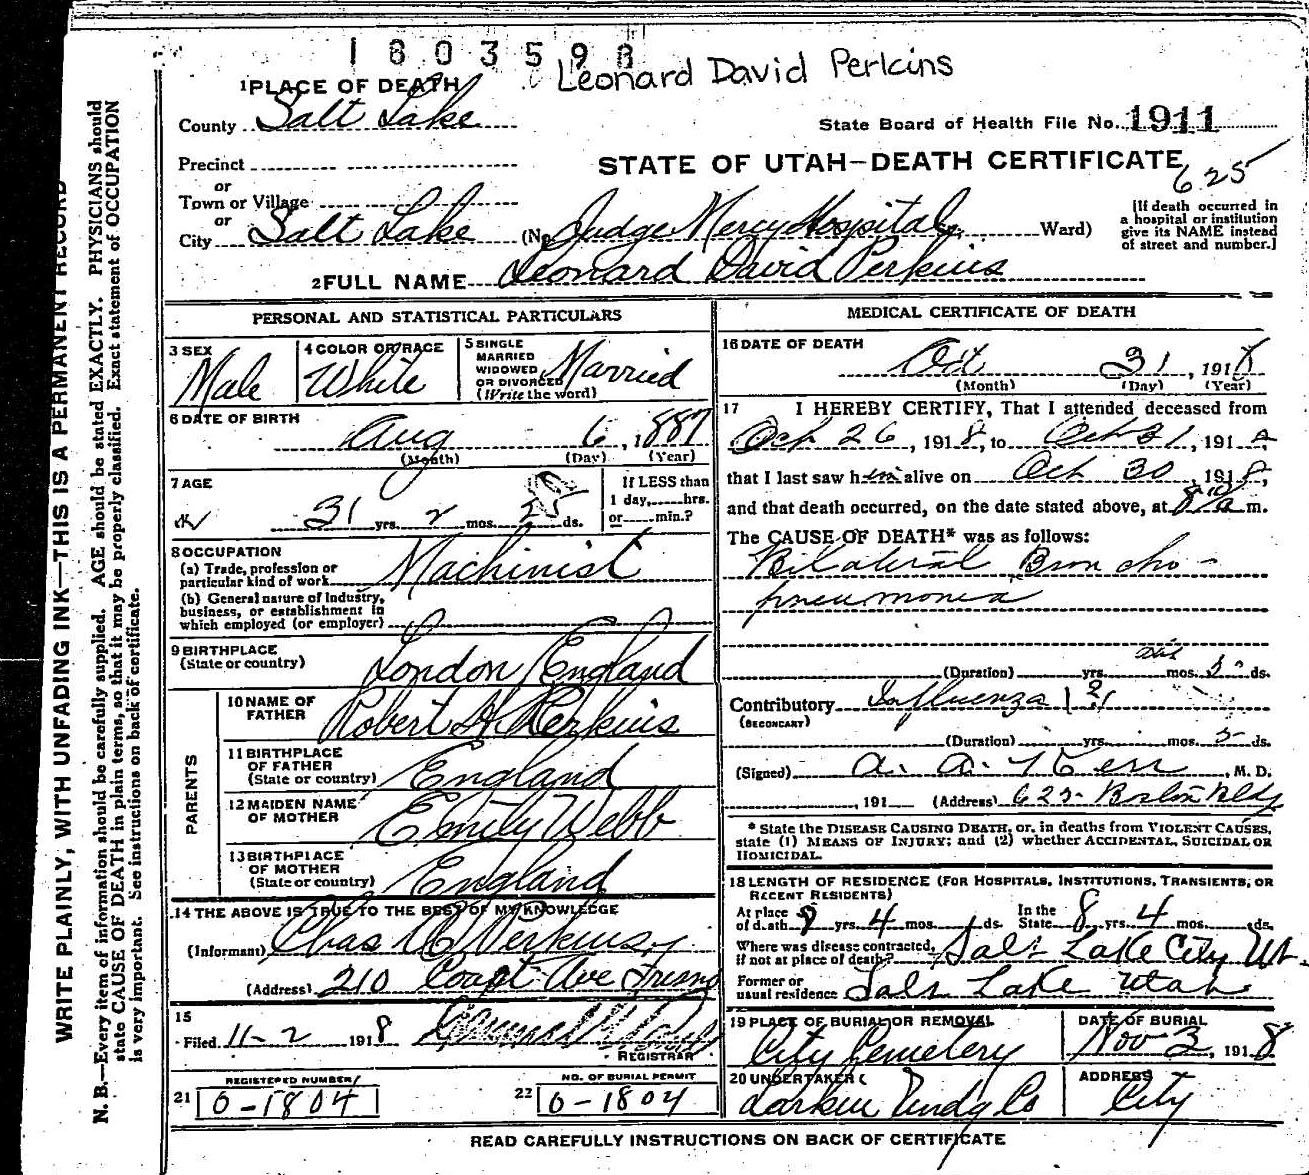 1803598
Leonard David Perkins
1 PLACE OF DEATH
County Salt Lake
State Board of Health File No. 1911
Precinct
STATE OF UTAH—DEATH CERTIFICATE
625
or
Town or Village
or
City Salt Lake (No. Judge Mercy Hospital Ward)
[If death occurred in a hospital or institution give its NAME instead of street and number.]
2 FULL NAME Leonard David Perkins
PERSONAL AND STATISTICAL PARTICULARS
3 SEX
Male
4 COLOR OR RACE
White
5 SINGLE MARRIED WIDOWED OR DIVORCED (Write the word)
Married
6 DATE OF BIRTH
Aug 6, 1887
(Month) (Day) (Year)
7 AGE
31 yrs. 2 mos. 25 ds.
If LESS than 1 day, hrs. or min.?
8 OCCUPATION
(a) Trade, profession or particular kind of work Machinist
(b) General nature of Industry, business, or establishment in which employed (or employer)
9 BIRTHPLACE (State or country) London England
PARENTS
10 NAME OF FATHER Robert H. Perkins
11 BIRTHPLACE OF FATHER (State or country) England
12 MAIDEN NAME OF MOTHER Emily Webb
13 BIRTHPLACE OF MOTHER (State or country) England
14 THE ABOVE IS TRUE TO THE BEST OF MY KNOWLEDGE
(Informant) Chas Perkins
(Address) 210 Ave
15
Filed 11-2 1918
REGISTRAR
REGISTERED NUMBER
21 0-1804
NO. OF BURIAL PERMIT
22 0-1804
MEDICAL CERTIFICATE OF DEATH
16 DATE OF DEATH
Oct 31, 1918
(Month) (Day) (Year)
17 I HEREBY CERTIFY, That I attended deceased from
Oct 26, 1918, to Oct 31, 191
that I last saw him alive on Oct 30 1918,
and that death occurred, on the date stated above, at m.
The CAUSE OF DEATH* was as follows:
Bilateral Broncho-
pneumonia
(Duration) yrs. mos. 5 ds.
Contributory Influenza
(SECONDARY)
(Duration) yrs. mos. 5 ds.
(Signed) A. A. Kerr, M. D.
, 191 (Address) 625
* State the DISEASE CAUSING DEATH, or, in deaths from VIOLENT CAUSES,
state (1) MEANS OF INJURY; and (2) whether ACCIDENTAL, SUICIDAL OR
HOMICIDAL.
18 LENGTH OF RESIDENCE (FOR HOSPITALS, INSTITUTIONS, TRANSIENTS, OR
RECENT RESIDENTS)
At place of death 8 yrs. 4 mos. ds. In the State 8 yrs. 4 mos. ds.
Where was disease contracted, if not at place of death? Salt Lake City Ut.
Former or usual residence Salt Lake Utah
19 PLACE OF BURIAL OR REMOVAL
City Cemetery
DATE OF BURIAL
Nov 3, 1918
20 UNDERTAKER
Larkin Undg Co
ADDRESS
City
READ CAREFULLY INSTRUCTIONS ON BACK OF CERTIFICATE
WRITE PLAINLY, WITH UNFADING INK—THIS IS A PERMANENT RECORD
N. B.—Every item of information should be carefully supplied. AGE should be stated EXACTLY. PHYSICIANS should
state CAUSE OF DEATH in plain terms, so that it may be properly classified. Exact statement of OCCUPATION
is very important. See instructions on back of certificate.